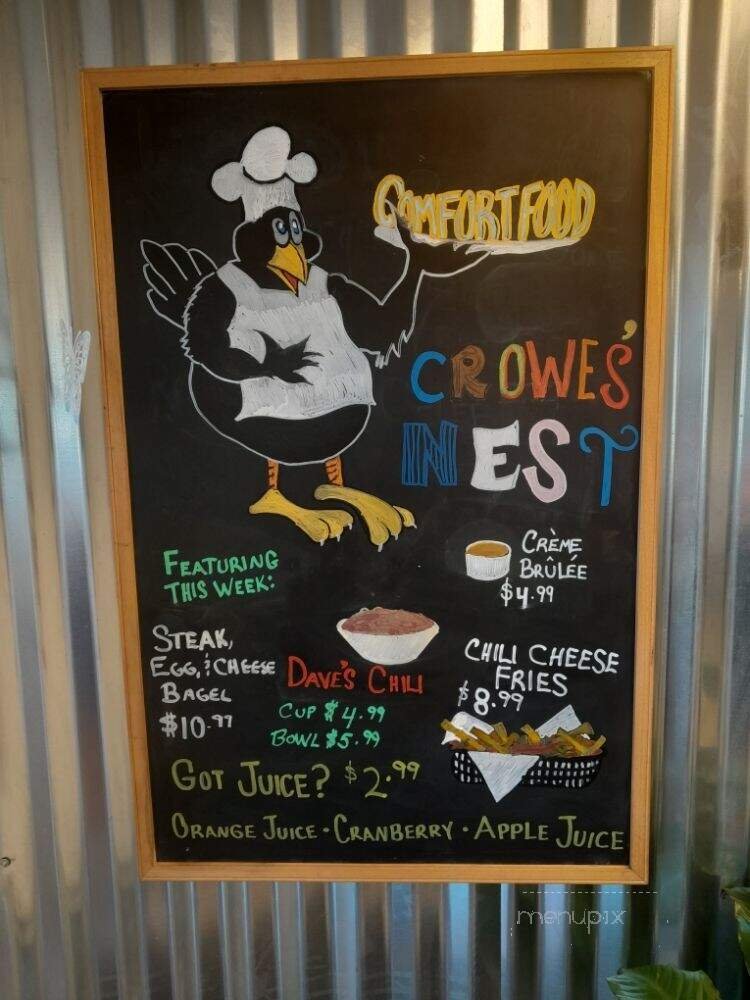 COMFORT FOOD
CROWES'
NEST
FEATURING
THIS WEEK:
CRÈME
BRÛLÉE
$4.99
STEAK,
EGG, & CHEESE
BAGEL
$10.99
DAVE'S CHILI
CUP $4.99
BOWL $5.99
CHILI CHEESE
FRIES
$8.99
GOT JUICE? $2.99
ORANGE JUICE · CRANBERRY · APPLE JUICE
menupix